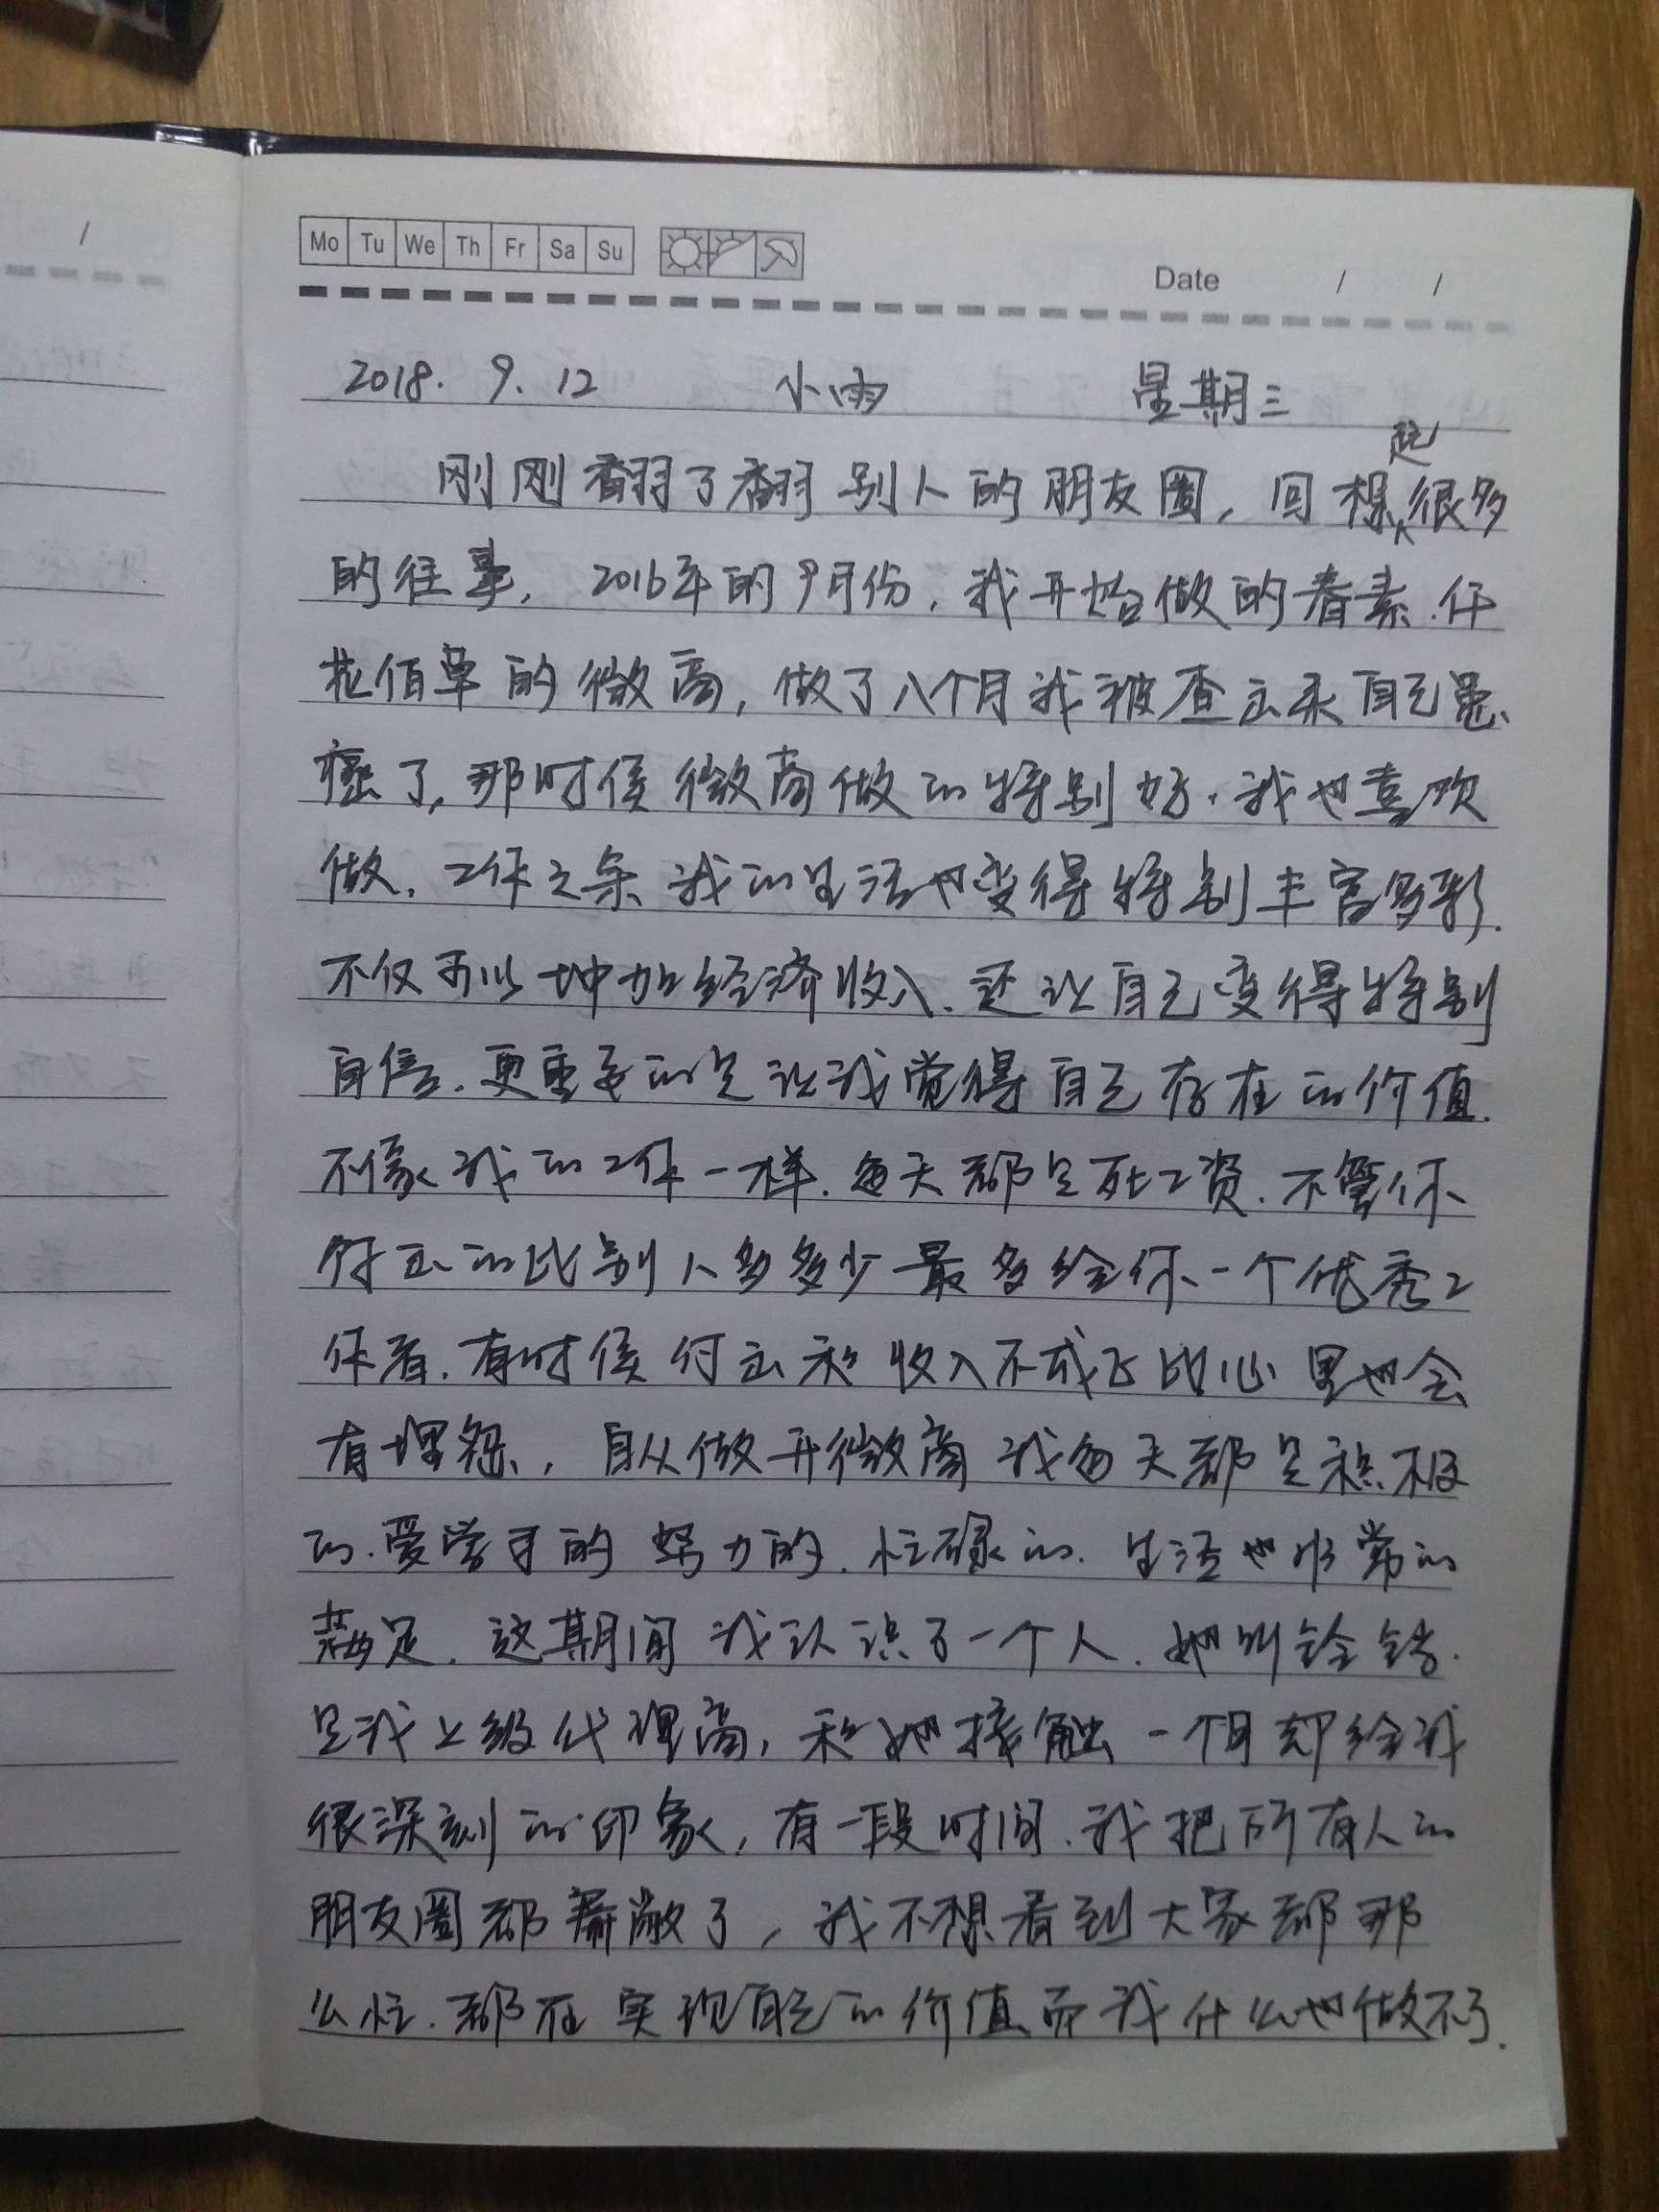 /
Mo Tu We Th Fr Sa Su
Date / /
2018. 9. 12 小雨 星期三
刚刚翻了翻别人的朋友圈，回想起很多
的往事，2016年的9月份，我开始做的春素.仟
花佰草的微商，做了八个月我被查出来自己患
癌了，那时候微商做的特别好，我也喜欢
做，工作之余我的生活也变得特别丰富多彩.
不仅可以增加经济收入.还让自己变得特别
自信.更重要的是让我觉得自己存在的价值.
不像我的工作一样.每天都是死工资.不管你
付出的比别人多多少最多给你一个优秀工
作者.有时候付出和收入不成正比心里也会
有埋怨，自从做开微商我每天都是积极
的.爱学习的努力的.忙碌的.生活也非常的
满足.这期间我认识了一个人.她叫铃铛.
是我上级代理商，和她接触一个月却给我
很深刻的印象，有一段时间.我把所有人的
朋友圈都屏蔽了，我不想看到大家都那
么忙.都在实现自己的价值而我什么也做不了.